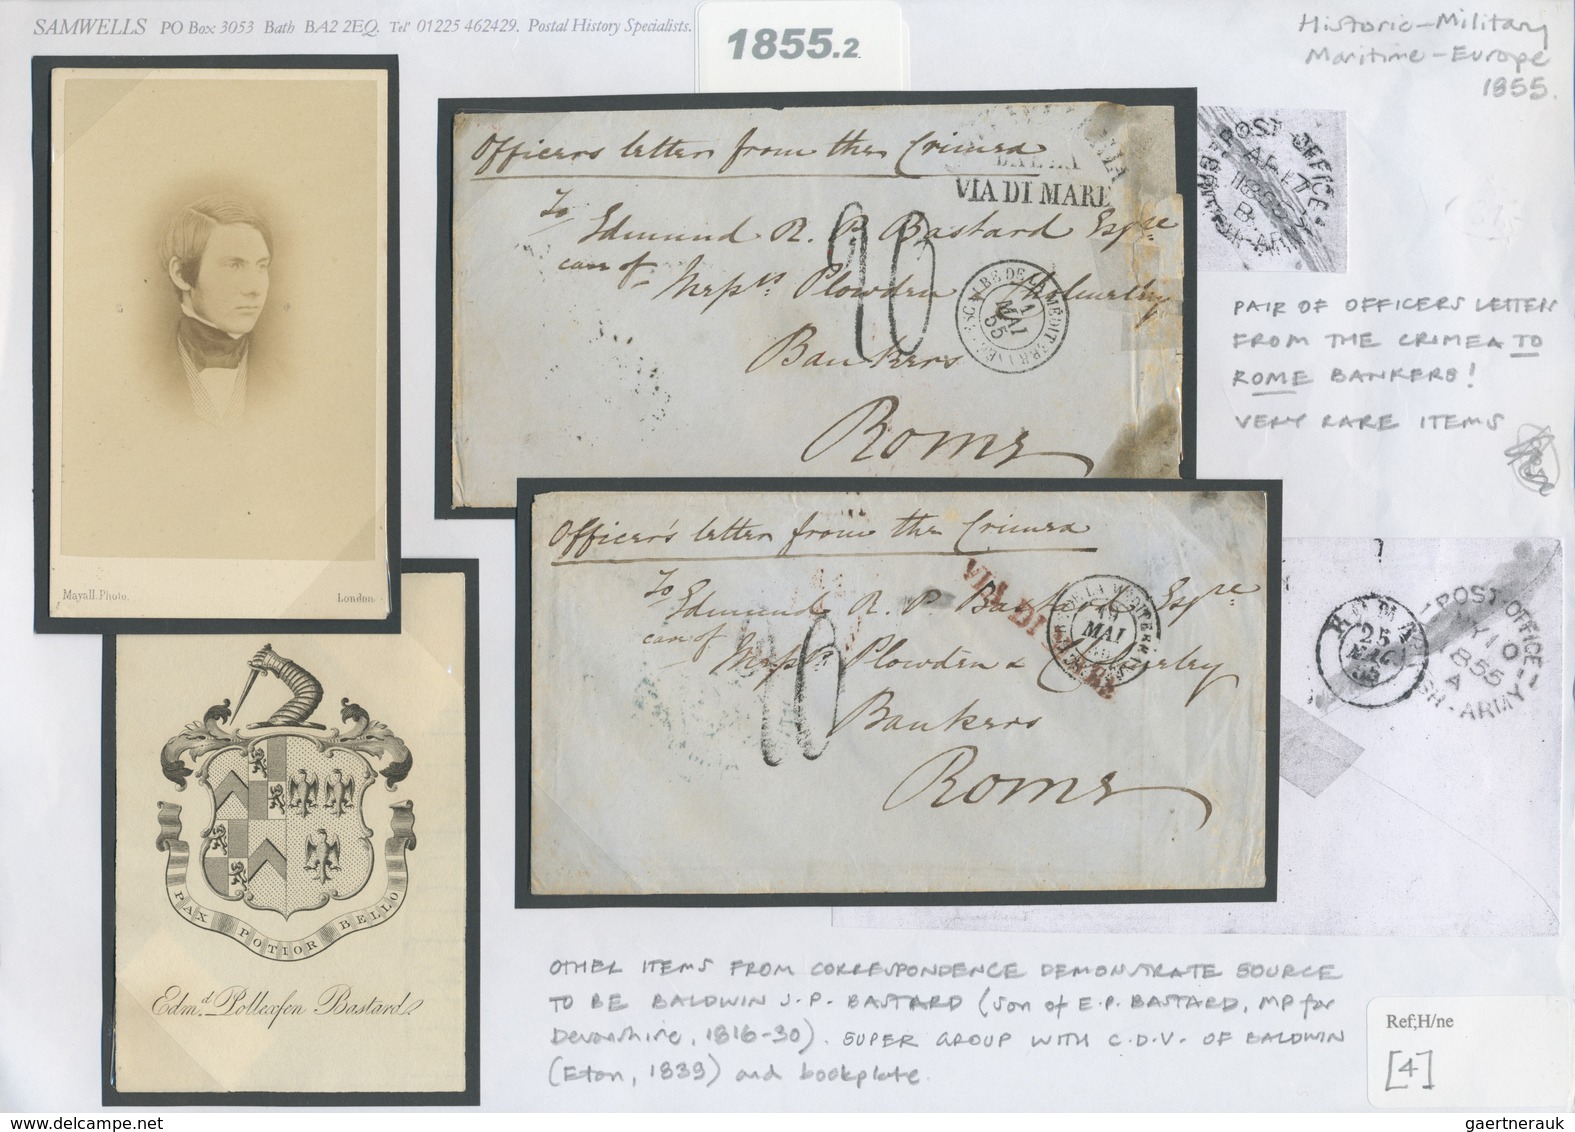 SAMWELLS PO Box 3053 Bath BA2 2EQ. Tel' 01225 462429. Postal History Specialists.
1855.2
Historic-Military
Maritime-Europe
1855.
Mayall Photo.
London.
PAX POTIOR BELLO
Edmd. Pollexfen Bastard
Officers letter from the Crimea
VIA DI MARE
To
Edmund R. P. Bastard Esqre
care of
Messrs. Plowden Cholmeley
Bankers
Rome
MAI
55
POST OFFICE
AP 17
1855
B
PAIR OF OFFICERS LETTERS
FROM THE CRIMEA TO
ROME BANKERS!
VERY RARE ITEMS
Officer's letter from the Crimea
To
Edmund R. P. Bastard Esqre
VIA DI MARE
care of
Messrs Plowden & Cholmeley
Bankers
Rome
MAI
ROMA
25
MAG
55
POST-OFFICE
1855
A
SH-ARMY
OTHER ITEMS FROM CORRESPONDENCE DEMONSTRATE SOURCE
TO BE BALDWIN J.P. BASTARD (son of E.P. BASTARD, MP for
Devonshire, 1816-30). SUPER GROUP WITH C.D.V. OF BALDWIN
(Eton, 1839) and bookplate.
Ref;H/ne
[4]
gaertnerauk